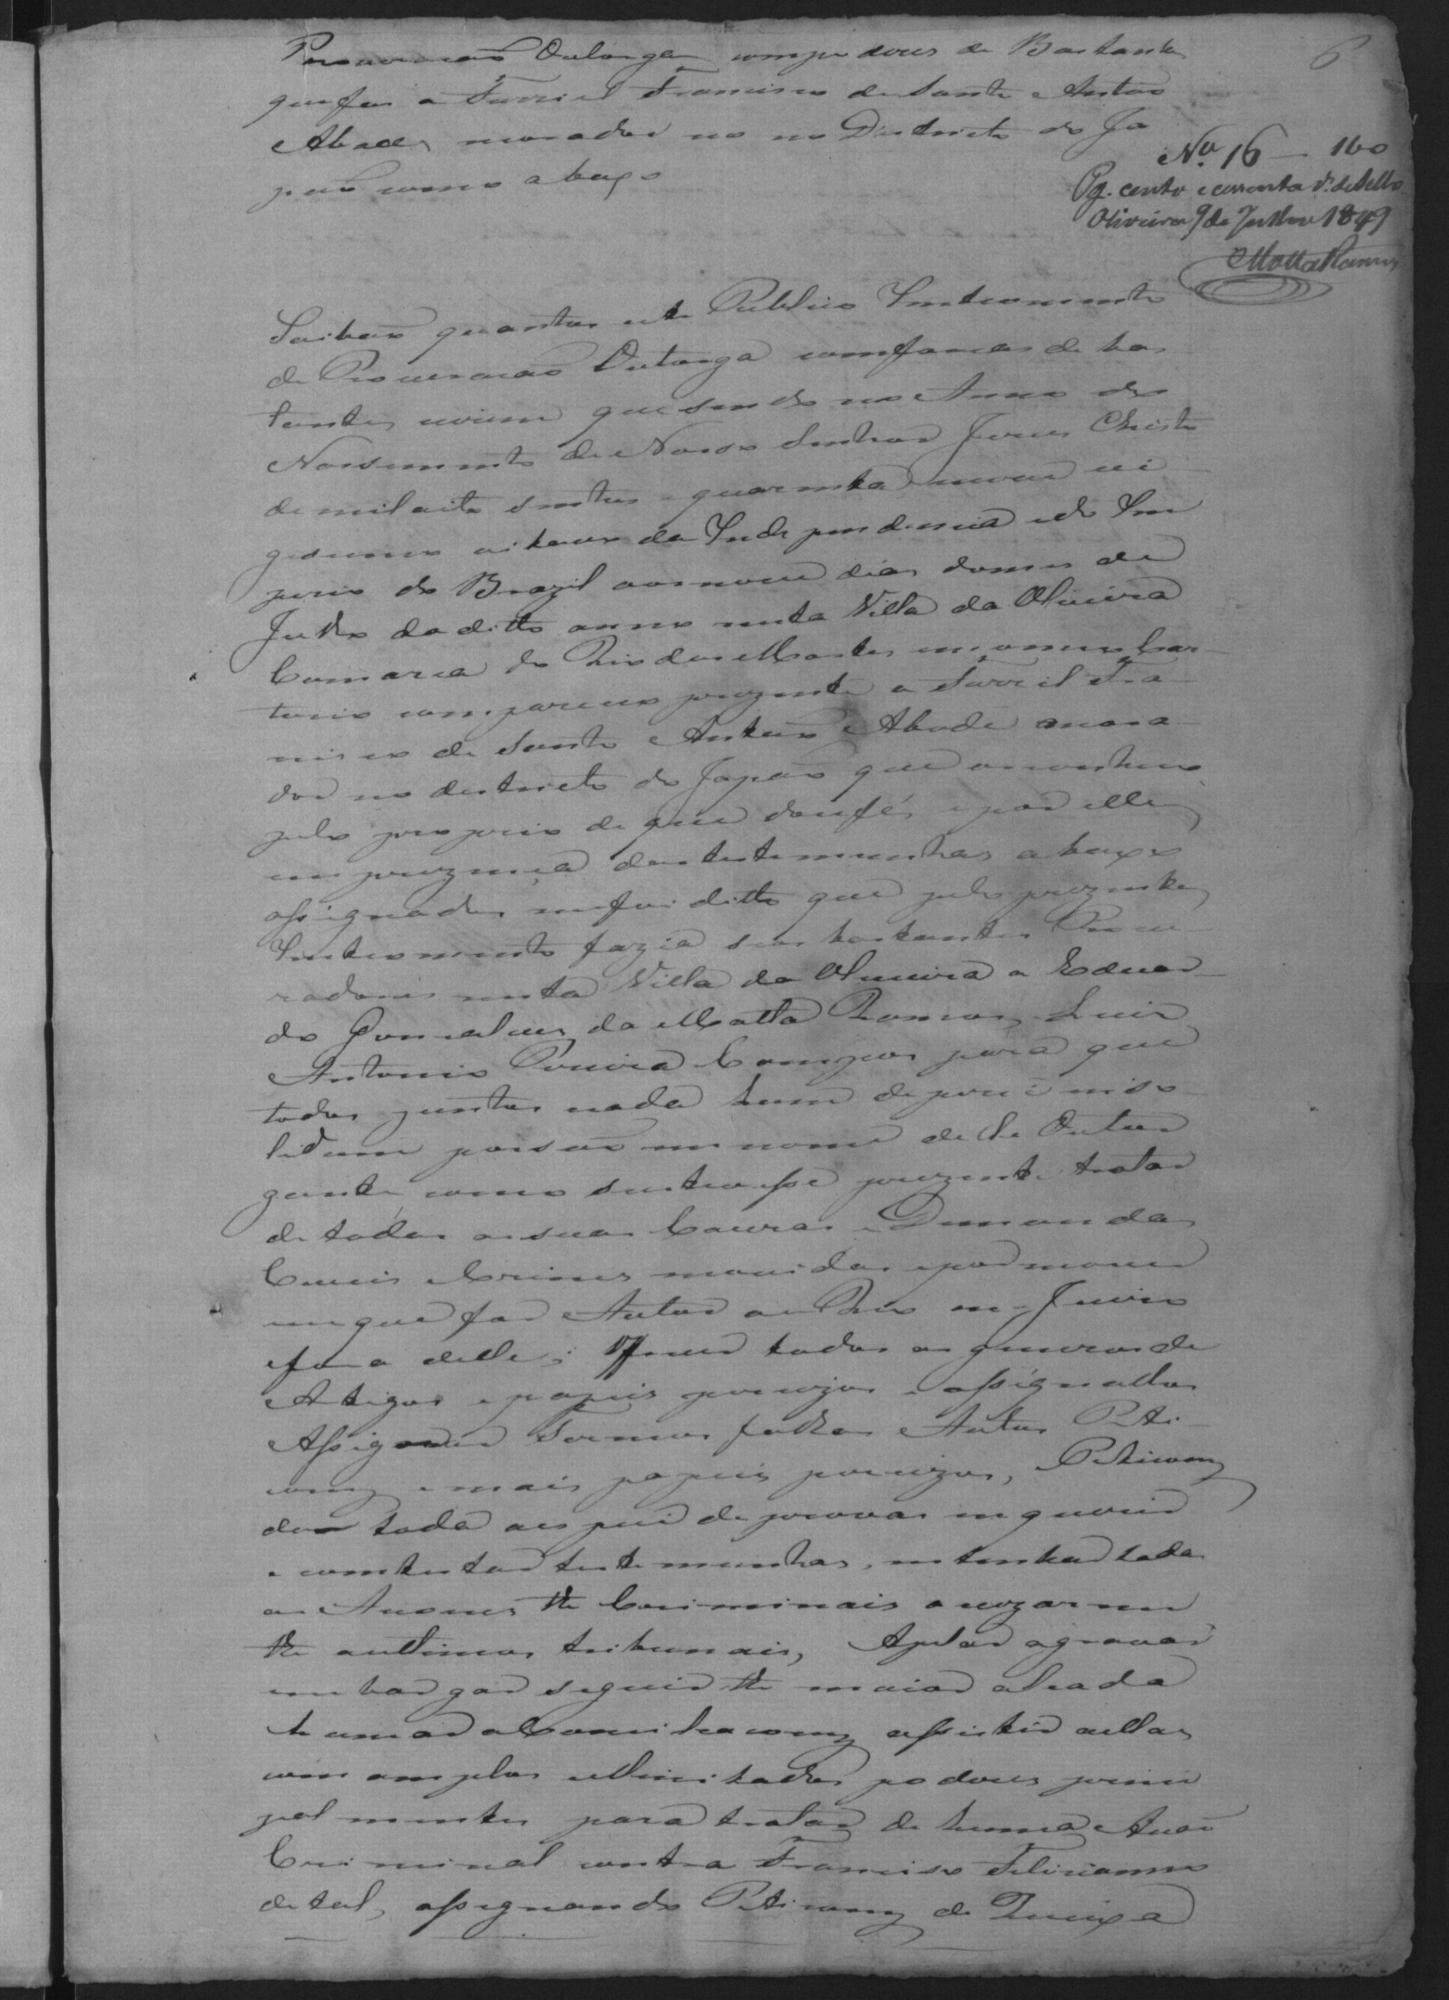 Procuracaõ Outorga com poderes de Bastante
que faz o Furriel Francisco de Santo e Antaõ
Abade, morador no no Districto do Ja
paõ como abaxo
6
Nº 16 — 160
Pg. cento e cessenta rs. de Sello
Oliveira 9 de Julho 1849
Motta Ramos
Saibaõ quantos este Publico Instromento
de Procuracaõ Outorga com poderes de bas
tante, virem que sendo no Anno do
Nassimento de Nosso Senhor Jesus Christo
de mil oito sentos e quarenta e nove vi
gesimo oitavo da Independencia e do Im
perio do Brazil aos nove dias do mes de
Julho do ditto anno nesta Villa da Oliveira
Comarca do Rio das Mortes em o meu Car
torio compareceo prezente o Furriel Fra
ncisco de Santo Antaõ Abade mora
dor no destricto do Japaõ que reconheco
pelo proprio de que dou fé, e por elle
em prezenca das testemunhas abaxo
assignadas me foi ditto que pelo prezente
Instromento fazia seus bastantes Procu
radores nesta Villa da Oliveira a Eduar
do Goncalves da Motta Ramos, Luis
Antonio Pereira Campos para que
todos juntos e cada hum de per si e in so
lidum possaõ em nome delle Outor
gante como se estivesse prezente tratar
de todas as suas Cauzas e Demandas
Civeis e Crimes movidas e por mover
em que for Autor ou Reo em Juizo
e fora delle; fazer todos os generos de
Artigos e papeis precizos e assignallos
Assignar Termos folhas Autos Peti
coens e mais papeis precizos,
dar toda a especie de provas inquerir
e contestar testemunhas, intentar todas
as Accoens the Criminais avozar em
the os ultimos tribunais, Apelar agravar
embargar seguir the maior alcada
tomar a Comiliacoens assistir a ellas
com amplos e Ilimitados poderes princi
palmentes para tratar de huma Acaõ
Criminal contra Francisco Feliciano
de tal, assignando Peticaons de Queixa